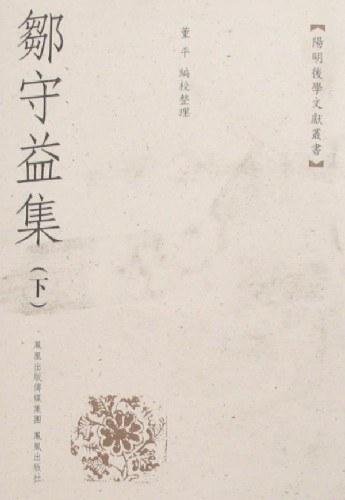 【陽明後學文獻叢書】
董平 編校整理
鄒守益集(下)
鳳凰出版傳媒集團 鳳凰出版社